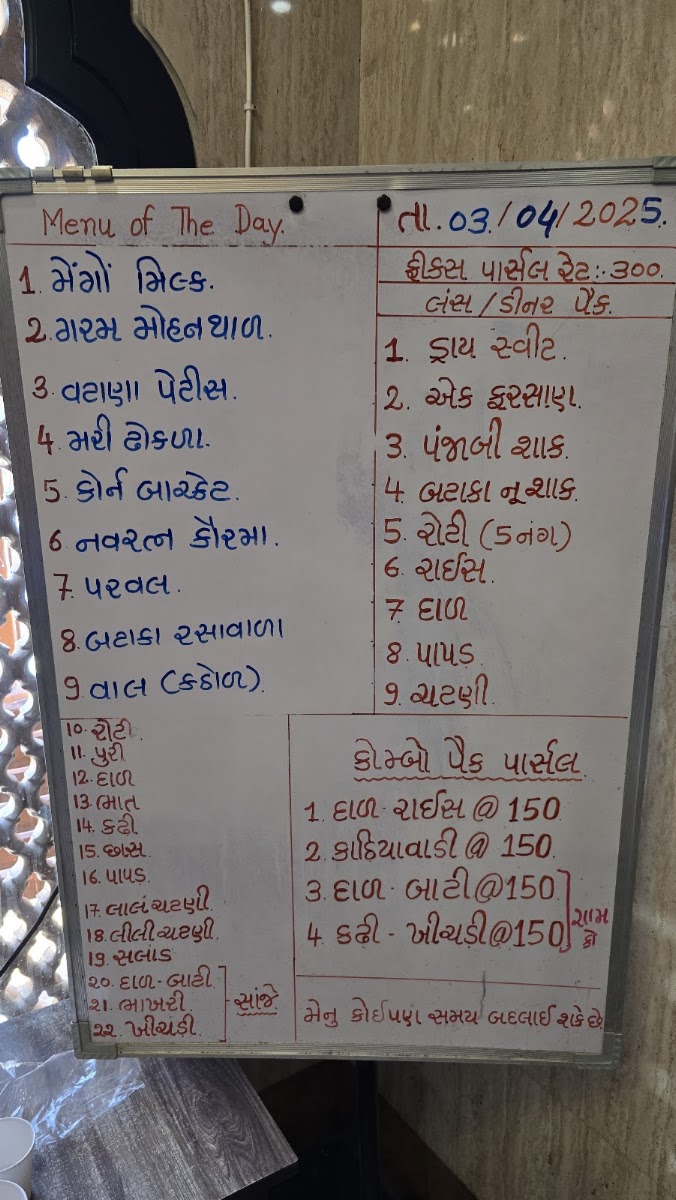 Menu of The Day.
1. મેંગોં મિલ્ક.
2. ગરમ મોહનથાળ.
3. વટાણા પેટીસ.
4. મરી ઢોકળા.
5. કોર્ન બાસ્કેટ.
6 નવરત્ન કૌરમા.
7. પરવલ.
8. બટાકા રસાવાળા
9. વાલ (કઠોળ).
10. રોટી.
11. પુરી
12. દાળ
13. ભાત
14. કઢી
15. છાસ.
16. પાપડ.
17. લાલ ચટણી.
18. લીલી ચટણી.
19. સલાડ
20. દાળ-બાટી
21. ભાખરી
૨૨. ખીચડી.
સાંજે.
તા. 03/04/2025.
ફીકસ પાર્સલ રેટ:- ૩૦૦.
લંસ / ડીનર પૈક.
1. ડ્રાય સ્વીટ.
2. એક ફરસાણ.
3. પંજાબી શાક.
4. બટાકા નૂ શાક.
5. રોટી (5 નંગ)
6. રાઈસ.
7. દાળ
8. પાપડ.
9. ચટણી.
કોમ્બો પૈક પાર્સલ
1. દાળ-રાઈસ @ 150
2. કાઠિયાવાડી @ 150.
3. દાળ-બાટી @ 150
4. કઢી - ખીચડી @ 150
શામ
કો
મેનુ કોઈપણ સમય બદલાઈ શકે છે